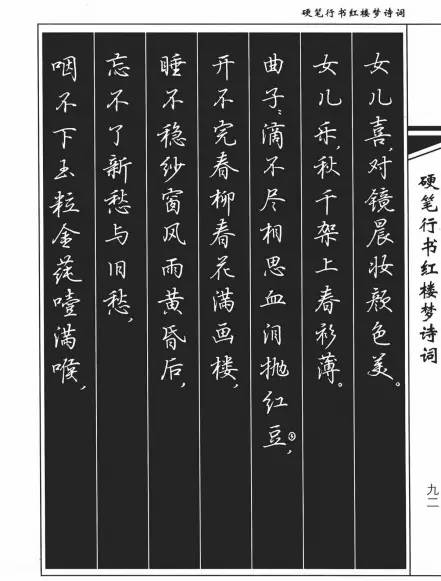 硬笔行书红楼梦诗词
女儿喜,对镜晨妆颜色美。
女儿乐,秋千架上春衫薄。
曲子:滴不尽相思血泪抛红豆①,
开不完春柳春花满画楼,
睡不稳纱窗风雨黄昏后,
忘不了新愁与旧愁,
咽不下玉粒金莼噎满喉,
硬笔行书红楼梦诗词
九二